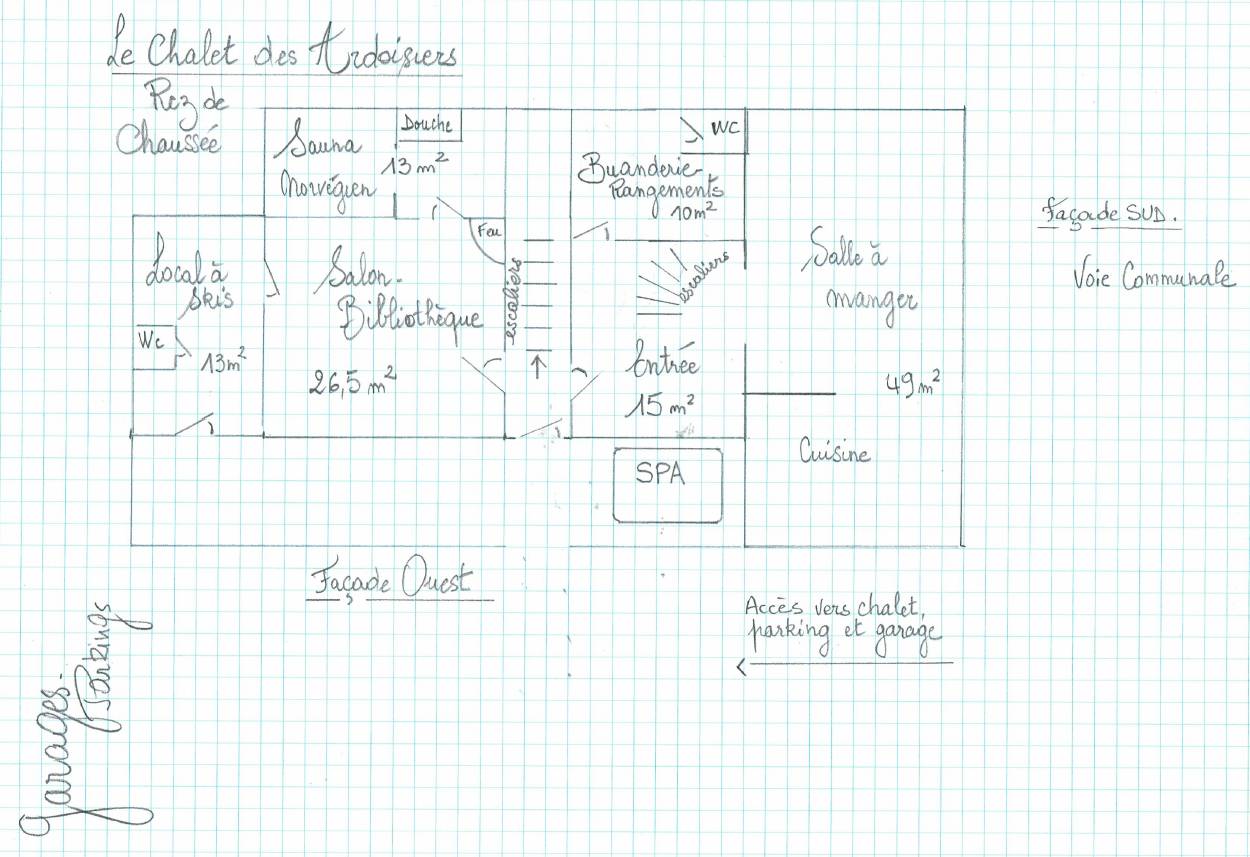 Le Chalet des Ardoisiers
Rez de
Chaussée
Sauna
Norvégien
Douche
13 m²
WC
Buanderie-
Rangements
10 m²
Façade SUD.
Voie Communale
Local à
Skis
Wc
13 m²
Salon-
Bibliothèque
26,5 m²
Feu
escaliers
escaliers
Entrée
15 m²
Salle à
manger
49 m²
Cuisine
SPA
Façade Ouest
Accès vers chalet,
parking et garage
Garages-
Parkings